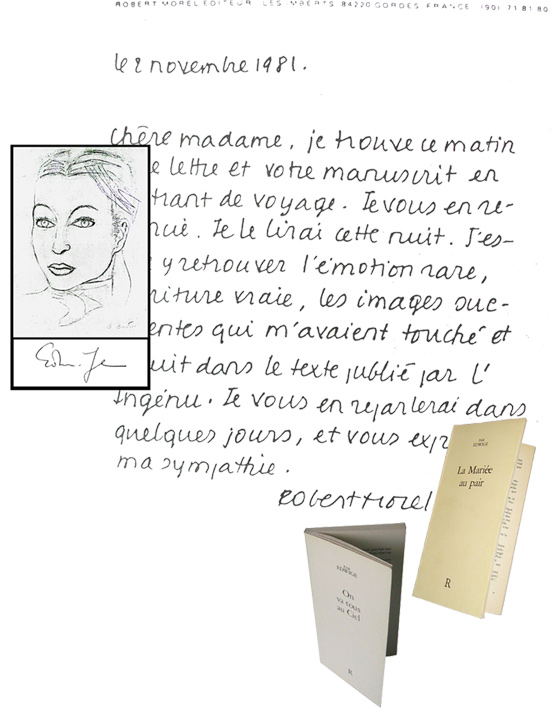 ROBERT MOREL EDITEUR LES IMBERTS 84220 GORDES FRANCE (90) 71 81 80
le 2 novembre 1981.
chère madame, je trouve ce matin
lettre et votre manuscrit en
de voyage. Je vous en re-
Je le lirai cette nuit. J'es-
y retrouver l'émotion rare,
vraie, les images suc-
qui m'avaient touché et
dans le texte publié par l'
Ingénu. Je vous en reparlerai dans
quelques jours, et vous
ma sympathie.
Robert Morel
EDWIGE
La Mariée
au pair
R
EDWIGE
On
va tous
au Ciel
R